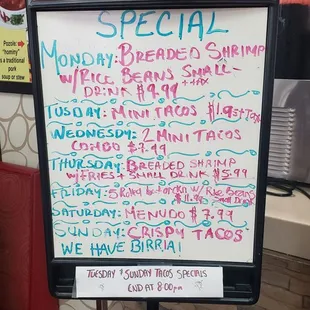 Pozole →
"hominy"
is a traditional
pork
soup or stew
SPECIAL
MONDAY: BREADED SHRIMP
W/RICE BEANS SMALL
DRINK $9.99 + TAX
TUSDAY: MINI TACOS $1.95+TAX
WEDNESDAY: 2 MINI TACOS
COMBO $7.99
THURSDAY: BREADED SHRIMP
W/FRIES + SMALL DRINK $5.99
FRIDAY: 5 W/ RICE BEANS
$11.99 SMALL DRINK
SATURDAY: MENUDO $7.99
SUNDAY: CRISPY TACOS
WE HAVE BIRRIA!
TUESDAY & SUNDAY TACOS SPECIALS
END AT 8:00pm